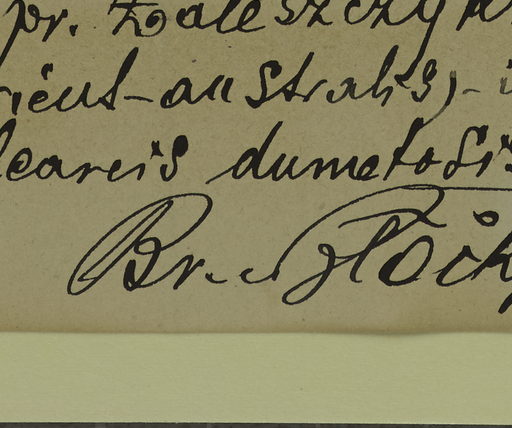 pr. Zaleszczyk
rient-australis,-
lcareis dumetosis
Br. Błock